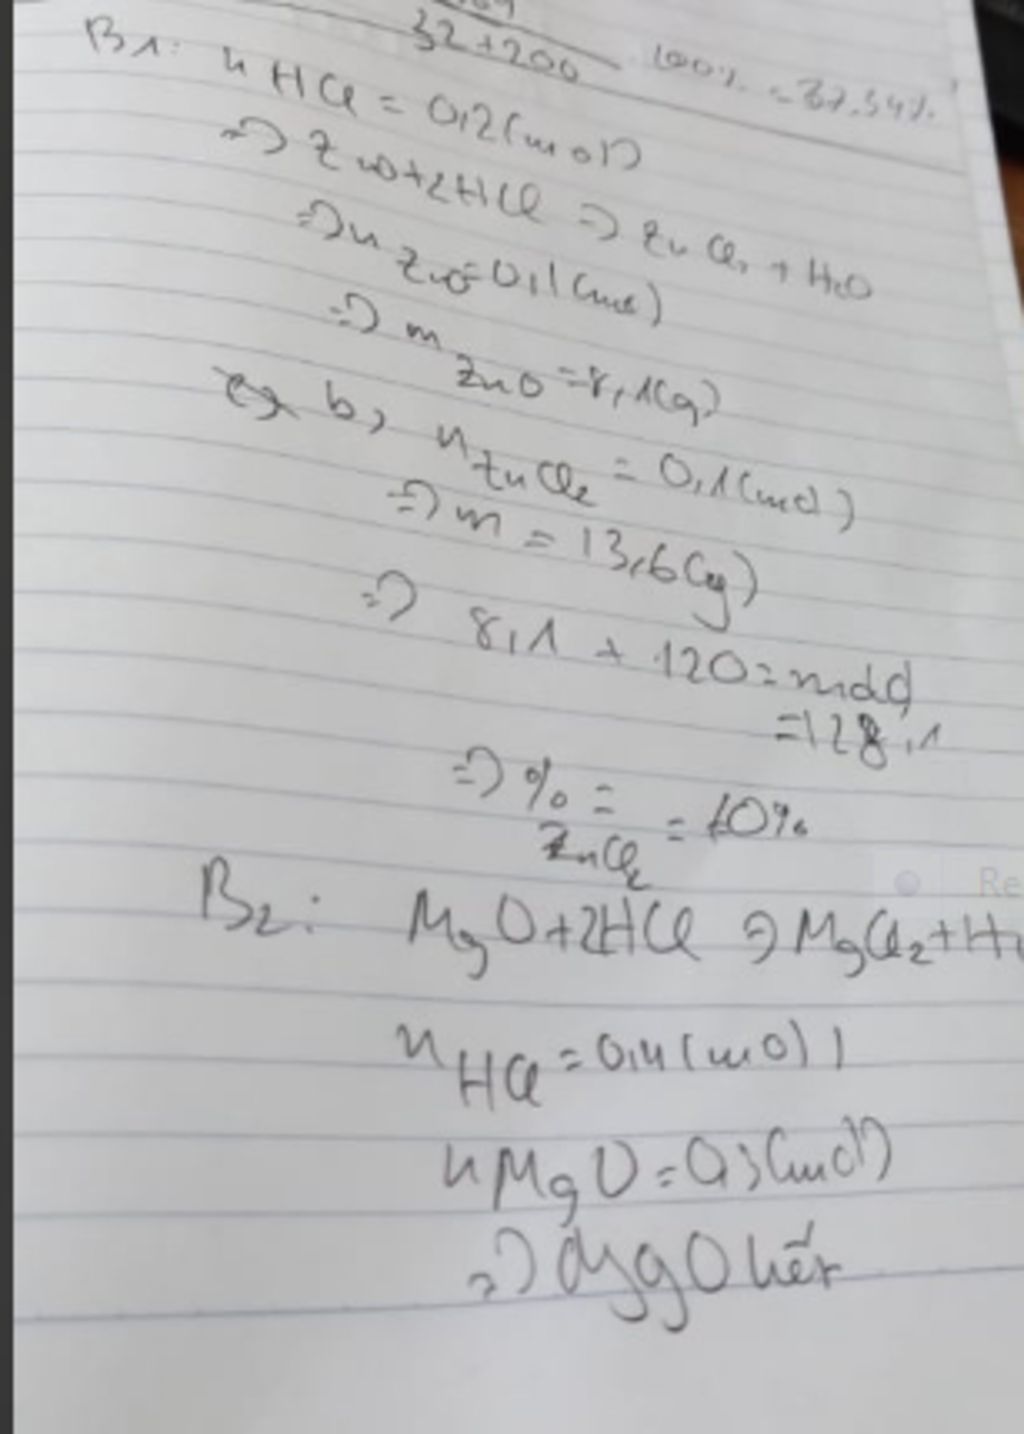 32+200 100% = 37.54%
B1: n HCl = 0,2(mol)
=> ZnO+2HCl => ZnCl2 + H2O
=> n ZnO = 0,1(mol)
=> m ZnO = 8,1(g)
b, n ZnCl2 = 0,1(mol)
=> m = 13,6(g)
=> 8,1 + 120 = mdd
= 128,1
=> % ZnCl2 = = 10%
Re
B2: MgO+2HCl => MgCl2+H
n HCl = 0,4(mol)
n MgO = 0,3(mol)
=> MgO hết